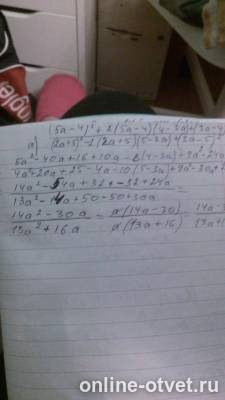 (5a-4)² + 2(5a-4)(4-3a)+(3a-4)
а) (2a+5)²-2(2a+5)(5-3a)+(3a-5)²
5a²-40a+16+10a-8(4-3a)+9a²-24a
4a²+20a+25-4a-10(5-3a)+9a²-30a+
14a²-54a+32+-32+24a =
13a²-14a+50-50+30a
14a²-30a = a(14a-30) = 14a-
13a²+16a a(13a+16) 13a+1
online-otvet.ru